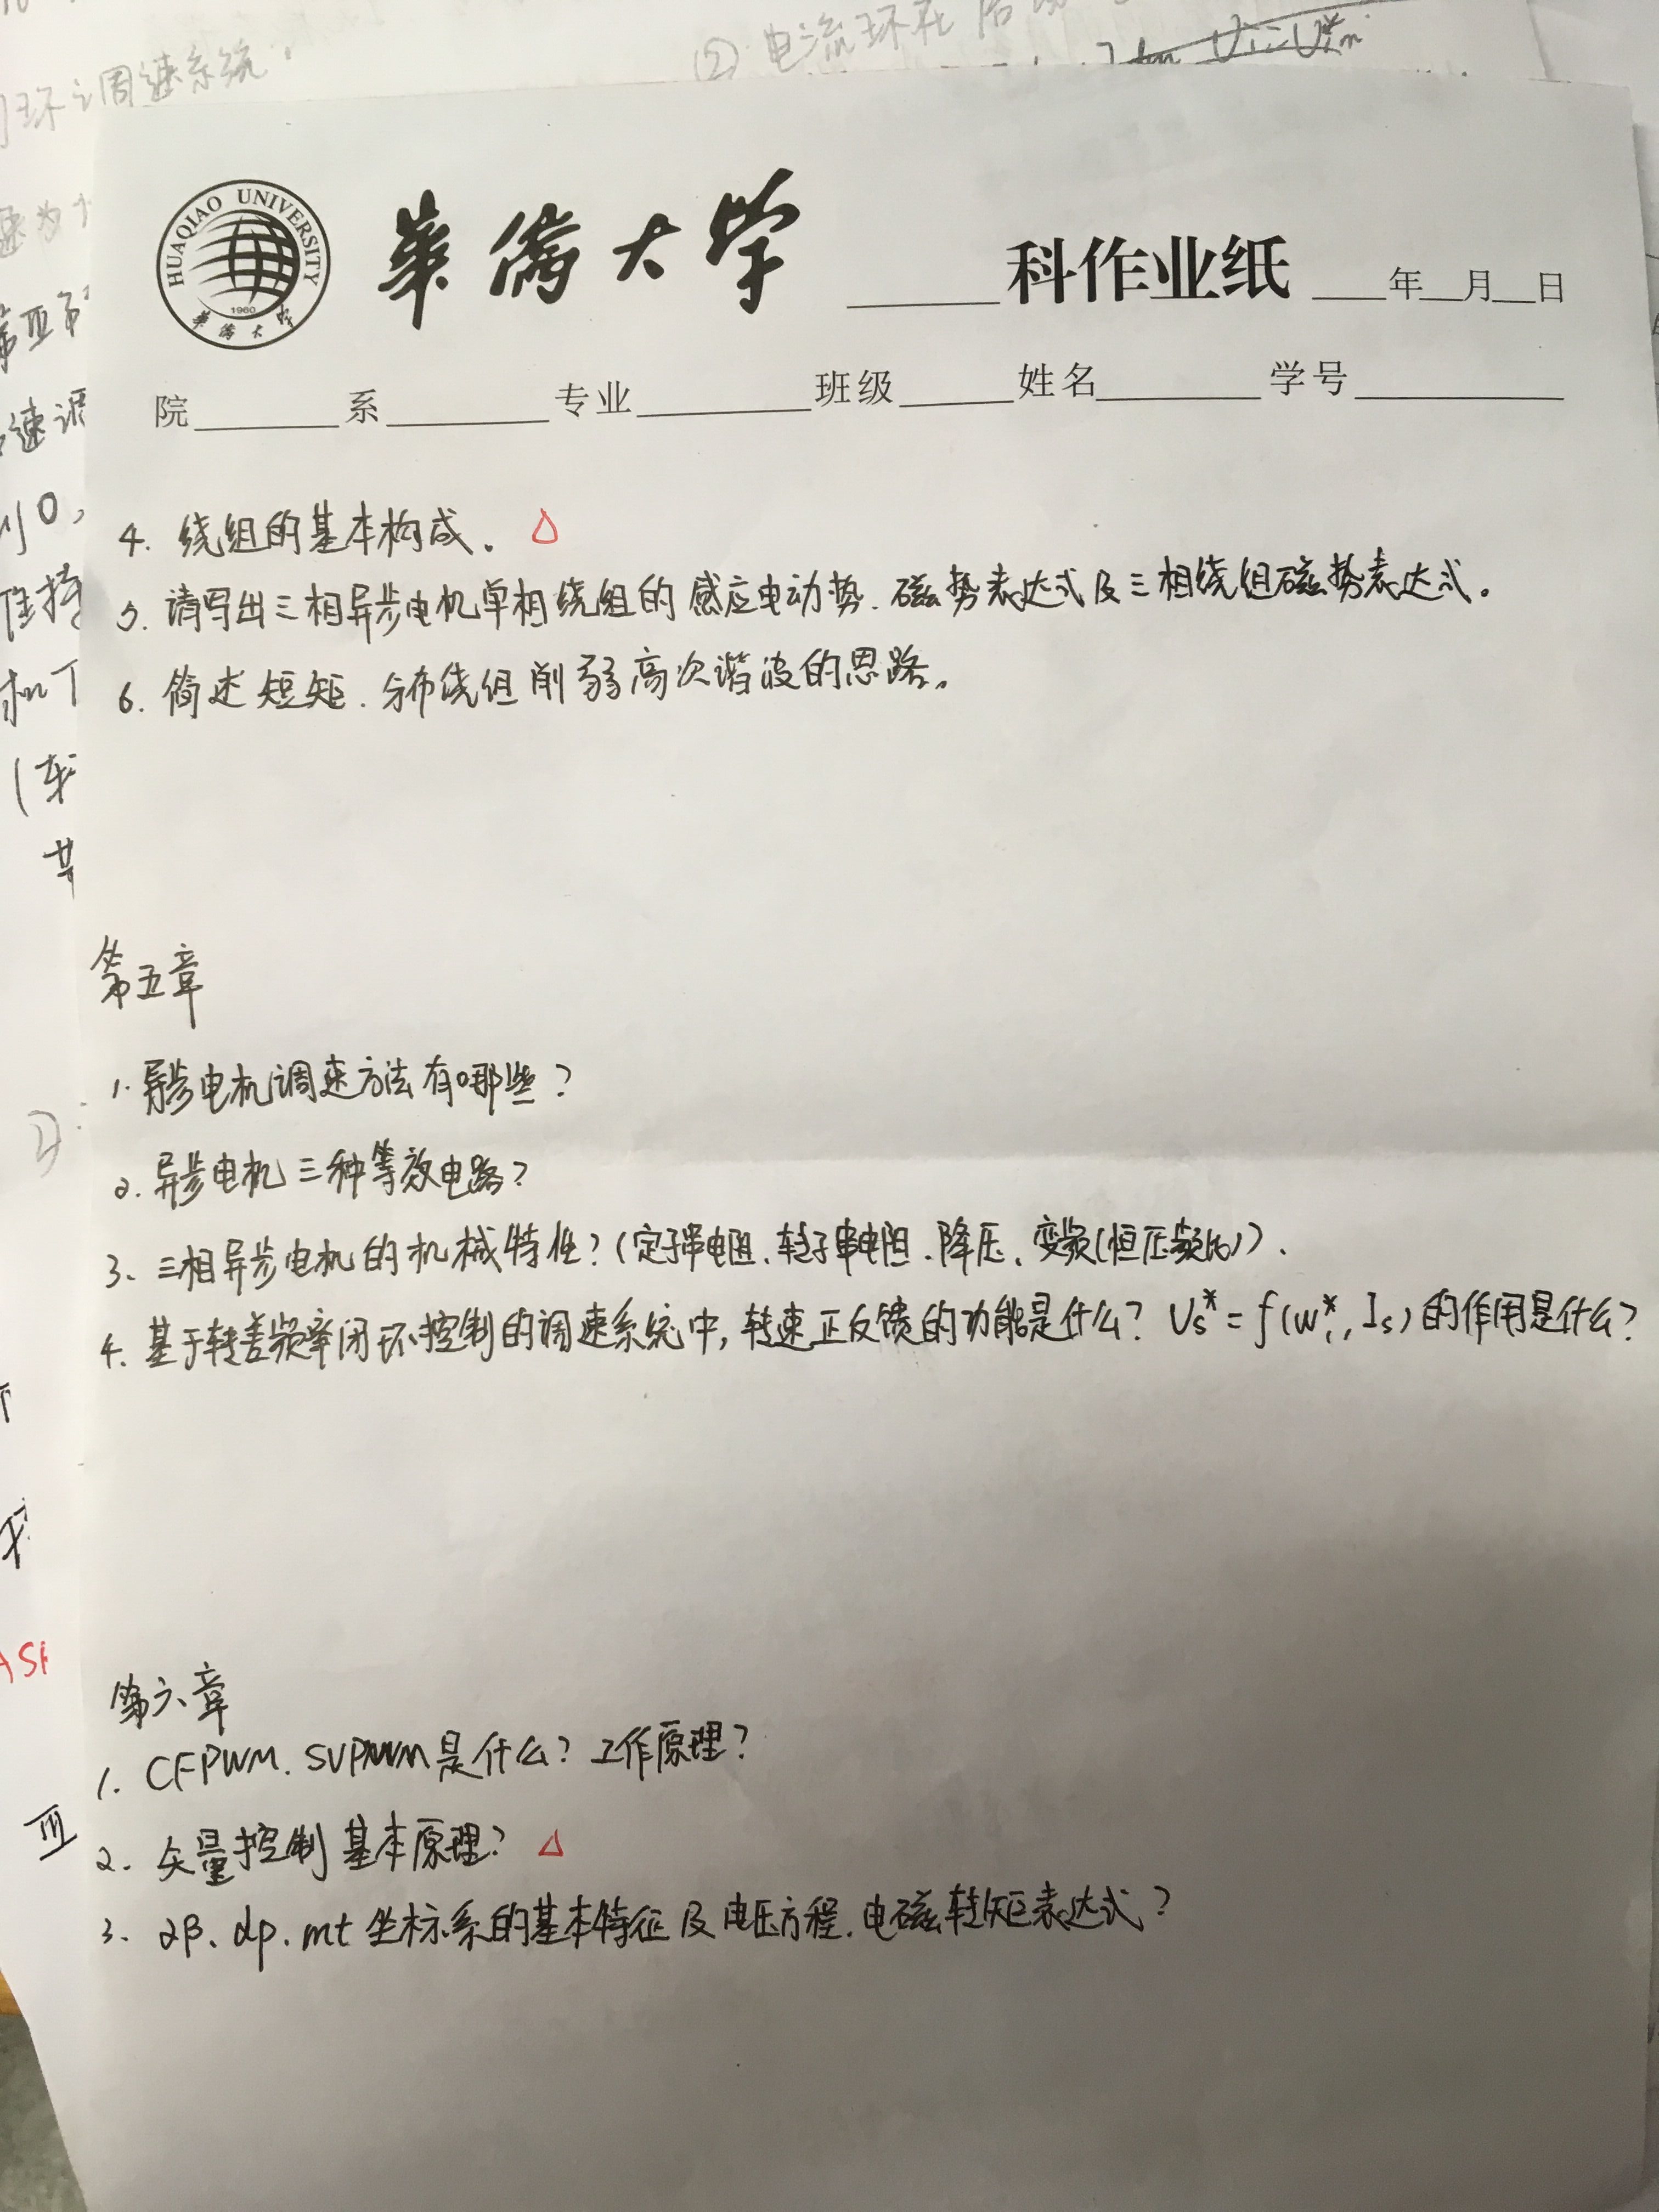 ②电流环在
闭环调速系统.
HUAQIAO UNIVERSITY
1960
华侨大学
華僑大学 科作业纸 年 月 日
院 系 专业 班级 姓名 学号
4. 绕组的基本构成. △
5. 请写出三相异步电机单相绕组的感应电动势、磁势表达式及三相绕组磁势表达式。
6. 简述短矩、分布绕组削弱高次谐波的思路。
第五章
1. 异步电机调速方法有哪些?
2. 异步电机三种等效电路?
3. 三相异步电机的机械特性?(定子串电阻、转子串电阻、降压、变频(恒压频比)).
4. 基于转差频率闭环控制的调速系统中,转速正反馈的功能是什么? Us* = f(w1*, Is) 的作用是什么?
第六章
1. CFPWM. SVPWM是什么? 工作原理?
2. 矢量控制基本原理? △
3. αβ、dp、mt 坐标系的基本特征及电压方程、电磁转矩表达式?